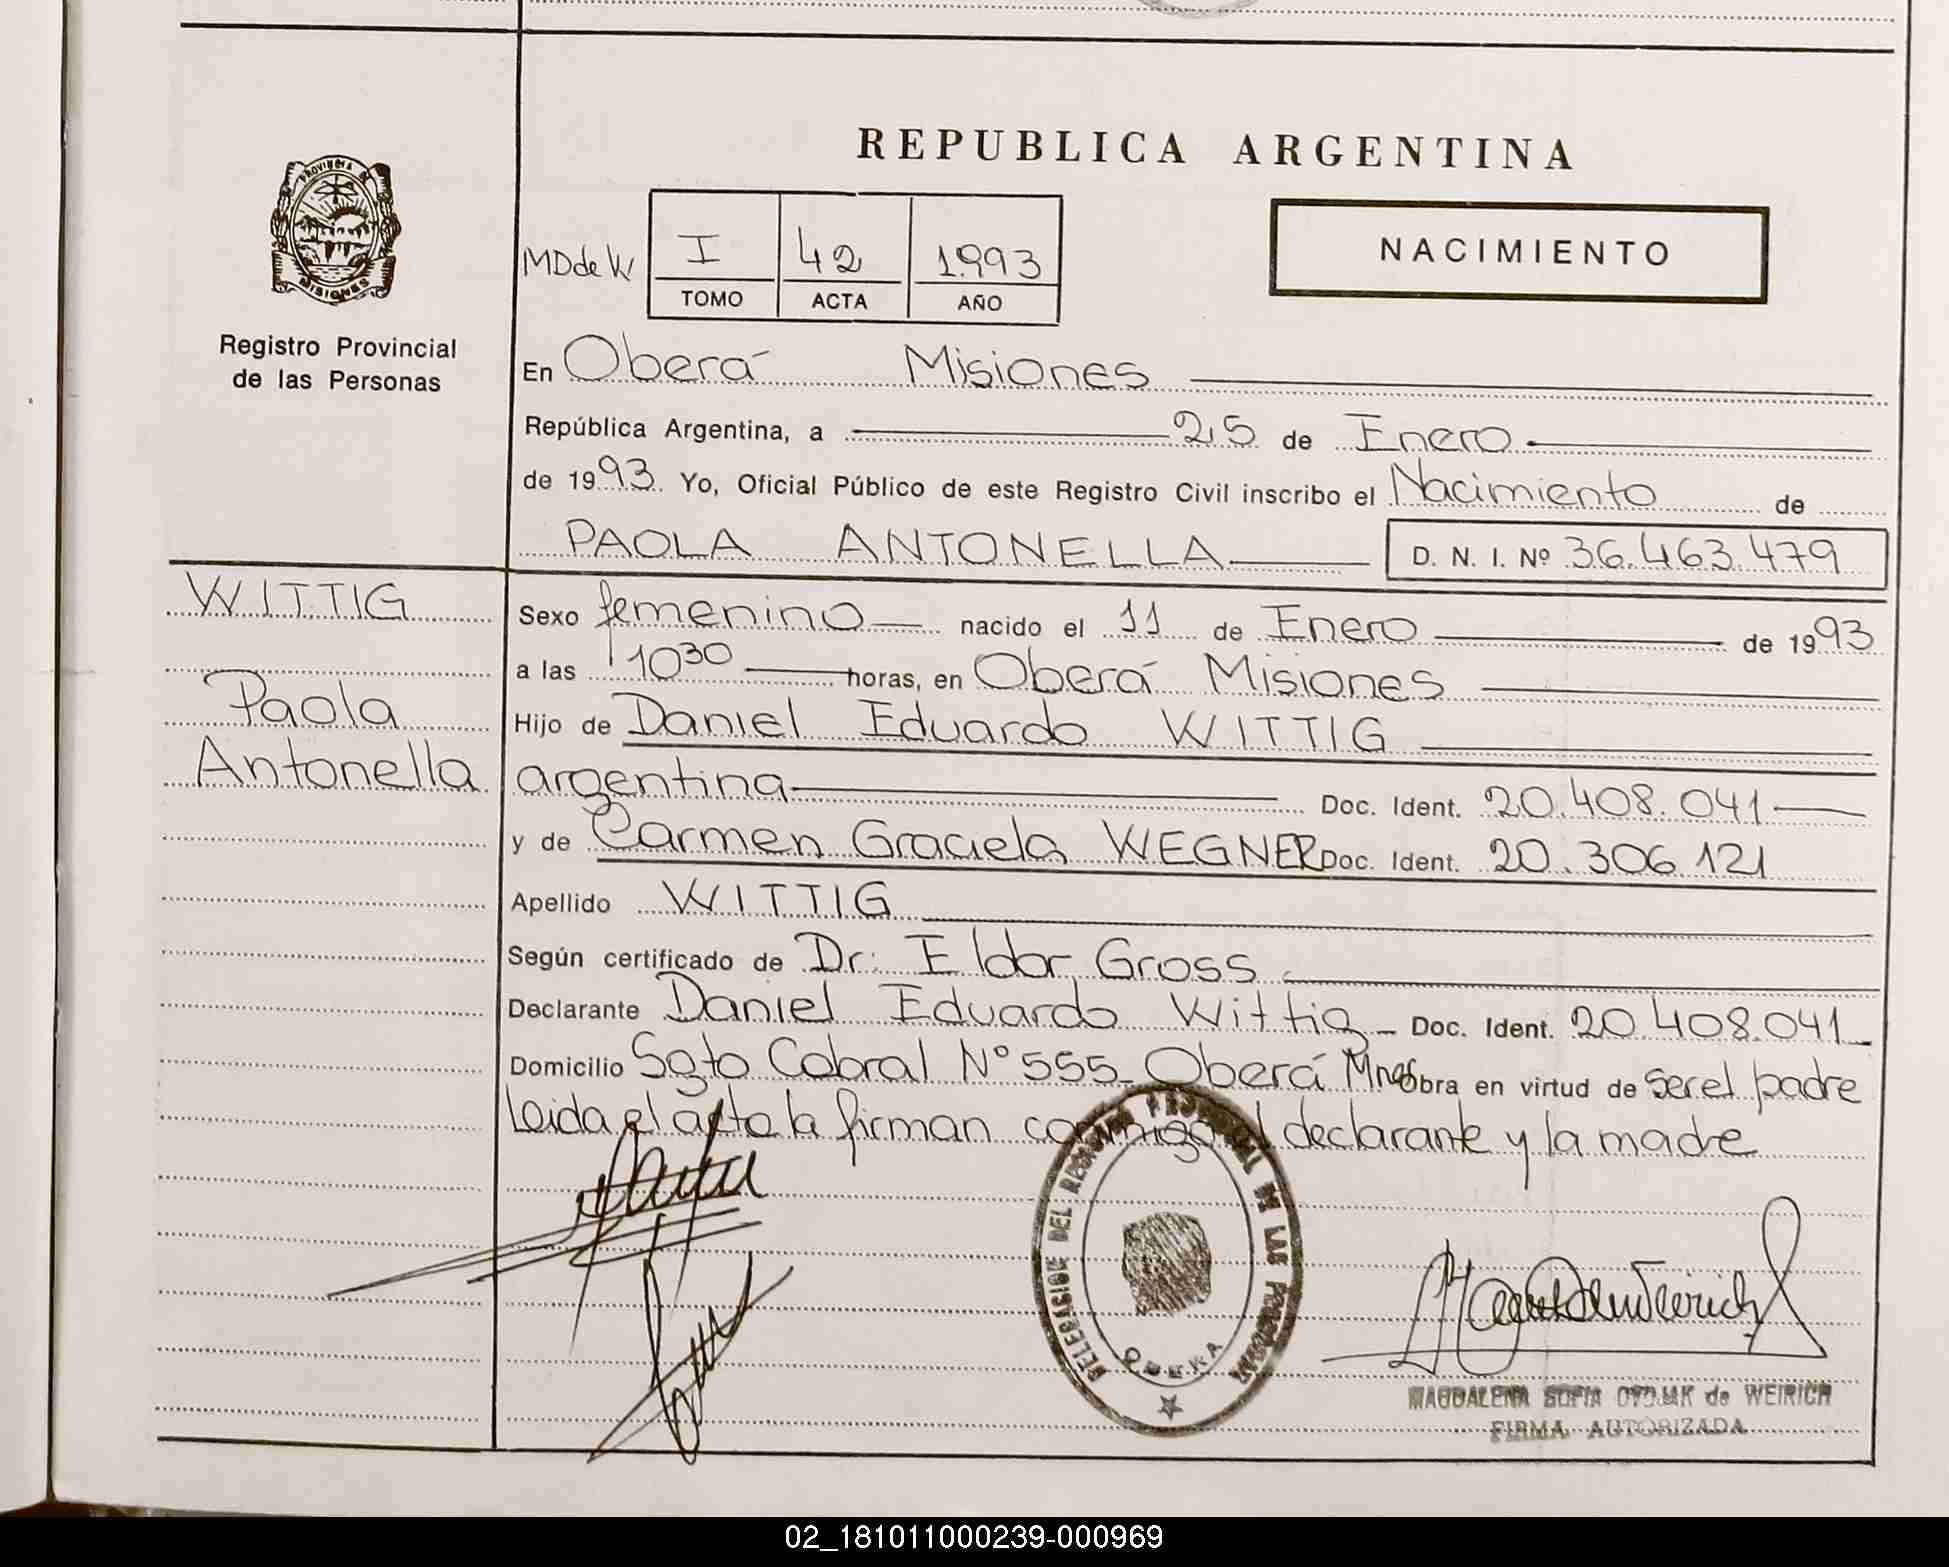 PROVINCIA DE
MISIONES
Registro Provincial
de las Personas
REPUBLICA ARGENTINA
NACIMIENTO
MD de W
I 42 1.993
TOMO ACTA AÑO
En Oberá Misiones
República Argentina, a 25 de Enero
de 1993. Yo, Oficial Público de este Registro Civil inscribo el Nacimiento de
PAOLA ANTONELLA D. N. I. Nº 36.463.479
WITTIG
Paola
Antonella
Sexo femenino nacido el 11 de Enero de 1993
a las 10 30 horas, en Oberá Misiones
Hijo de Daniel Eduardo WITTIG
argentina Doc. Ident. 20.408.041
y de Carmen Graciela WEGNER Doc. Ident. 20.306.121
Apellido WITTIG
Según certificado de Dr: Eldor Gross
Declarante Daniel Eduardo Wittig Doc. Ident. 20.408.041
Domicilio Sgto Cabral Nº 555 Oberá Mnes Obra en virtud de ser el padre
Leida el acta la firman conmigo el declarante y la madre
DELEGACION DEL REGISTRO PROVINCIAL DE LAS PERSONAS
OBERA
MAGDALENA SOFIA de WEIRICH
FIRMA AUTORIZADA
02_181011000239-000969